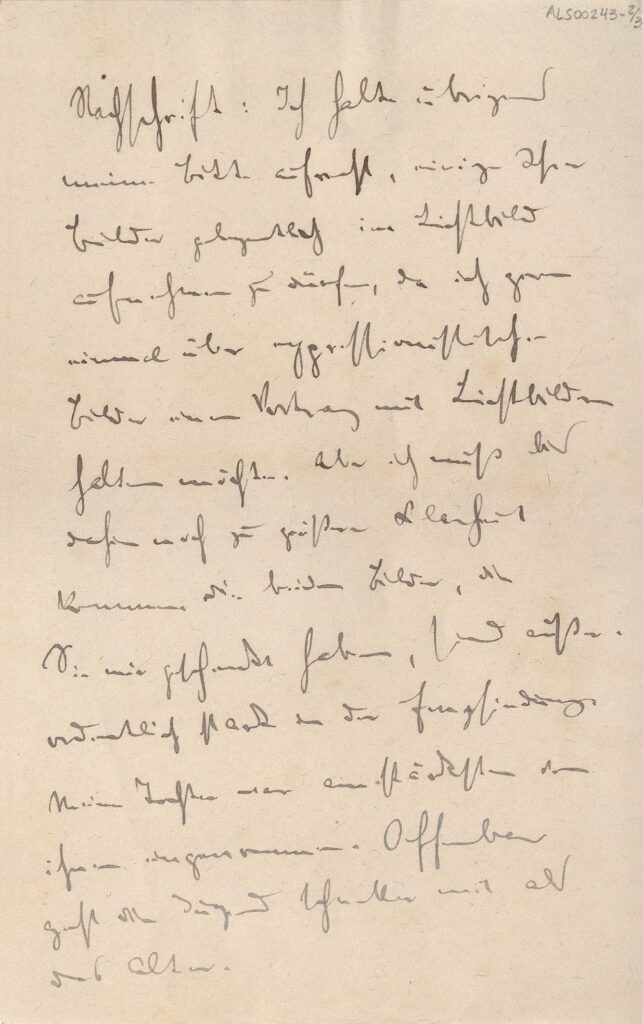 ALS00243-2/3
Nachschrift: Ich halte übrigens
meine Bitte aufrecht, einige Ihrer
Bilder gelegentlich im Lichtbild
aufnehmen zu dürfen, da ich gern
einmal über expressionistische
Bilder einen Vortrag mit Lichtbildern
halten möchte. Aber ich muß bis
dahin noch zu größerer Klarheit
kommen. Die beiden Bilder, die
Sie mir geschenkt haben, sind außer-
ordentlich stark in der Empfindung.
Meine Tochter war am stärksten von
ihnen eingenommen. Offenbar
geht die Jugend schneller mit als
das Alter.